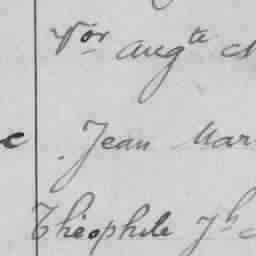 Vor Augte
c Jean Mar
Théophile Jh